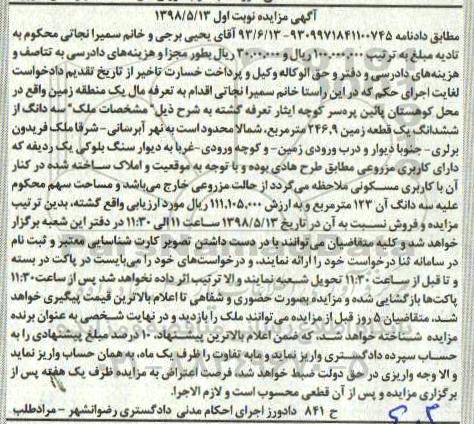 آگهی مزایده نوبت اول ۱۳۹۸/۵/۱۳
مطابق دادنامه ۹۳۰۹۹۷۱۸۴۱۱۰۰۷۴۵- ۹۳/۶/۱۳ آقای یحیی برجی و خانم سمیرا نجاتی محکوم به
تادیه مبلغ به ترتیب ۱۰۰.۰۰۰.۰۰۰ ریال و ۳۰.۰۰۰.۰۰۰ ریال بطور مجزا و هزینه‌های دادرسی به تناصف و
هزینه‌های دادرسی و دفتر و حق الوکاله وکیل و پرداخت خسارت تاخیر از تاریخ تقدیم دادخواست
لغایت اجرای حکم که در این راستا خانم سمیرا نجاتی اقدام به تعرفه مال یک منطقه زمین واقع در
محل کوهستان پائین پرده‌سر کوچه ایثار تعرفه گشته به شرح ذیل" مشخصات ملک" سه دانگ از
ششدانگ یک قطعه زمین ۲۴۶.۹ مترمربع، شمالا محدود است به نهر آبرسانی- شرقا ملک فریدون
برلری- جنوبا دیوار و درب ورودی زمین- و کوچه ورودی-غربا به دیوار سنگ بلوکی یک ردیفه که
دارای کاربری مزروعی مطابق طرح هادی بوده و با توجه به موقعیت و املاک ساخته شده در کنار
آن با کاربری مسکونی ملاحظه می‌گردد از حالت مزروعی خارج می‌باشد و مساحت سهم محکوم
علیه سه دانگ آن ۱۲۳ مترمربع و به ارزش ۱۱۱.۱۰۵.۰۰۰ ریال مورد ارزیابی واقع گشته، بدین ترتیب
مزایده و فروش نسبت به آن در تاریخ ۱۳۹۸/۵/۱۳ ساعت ۱۱ الی ۱۱:۳۰ در دفتر این شعبه برگزار
خواهد شد و کلیه متقاضیان می‌توانند با در دست داشتن تصویر کارت شناسایی معتبر و ثبت نام
در سامانه ثنا درخواست خود را ارائه نمایند، و درخواست‌های خود را می‌بایست در پاکت در بسته
و تا قبل از ساعت ۱۱:۳۰ تحویل شعبه نمایند والا ترتیب اثر داده نخواهد شد پس از ساعت ۱۱:۳۰
پاکت‌ها بازگشایی شده و مزایده بصورت حضوری و شفاهی تا اعلام بالاترین قیمت پیگیری خواهد
شد، متقاضیان ۵ روز قبل از مزایده می‌توانند ملک را بازدید و در نهایت شخصی به عنوان برنده
مزایده شناخته خواهد شد، که ضمن اعلام بالاترین پیشنهاد، ۱۰ درصد مبلغ پیشنهادی را به
حساب سپرده دادگستری واریز نماید و مابه تفاوت را ظرف یک ماه، به همان حساب واریز نماید
و الا وجه واریزی در حق دولت ضبط خواهد شد، فرصت اعتراض به مزایده ظرف یک هفته پس از
برگزاری مزایده و پس از آن قطعی محسوب است و لازم الاجرا.
ح ۸۴۱ دادورز اجرای احکام مدنی دادگستری رضوانشهر - مرادطلب